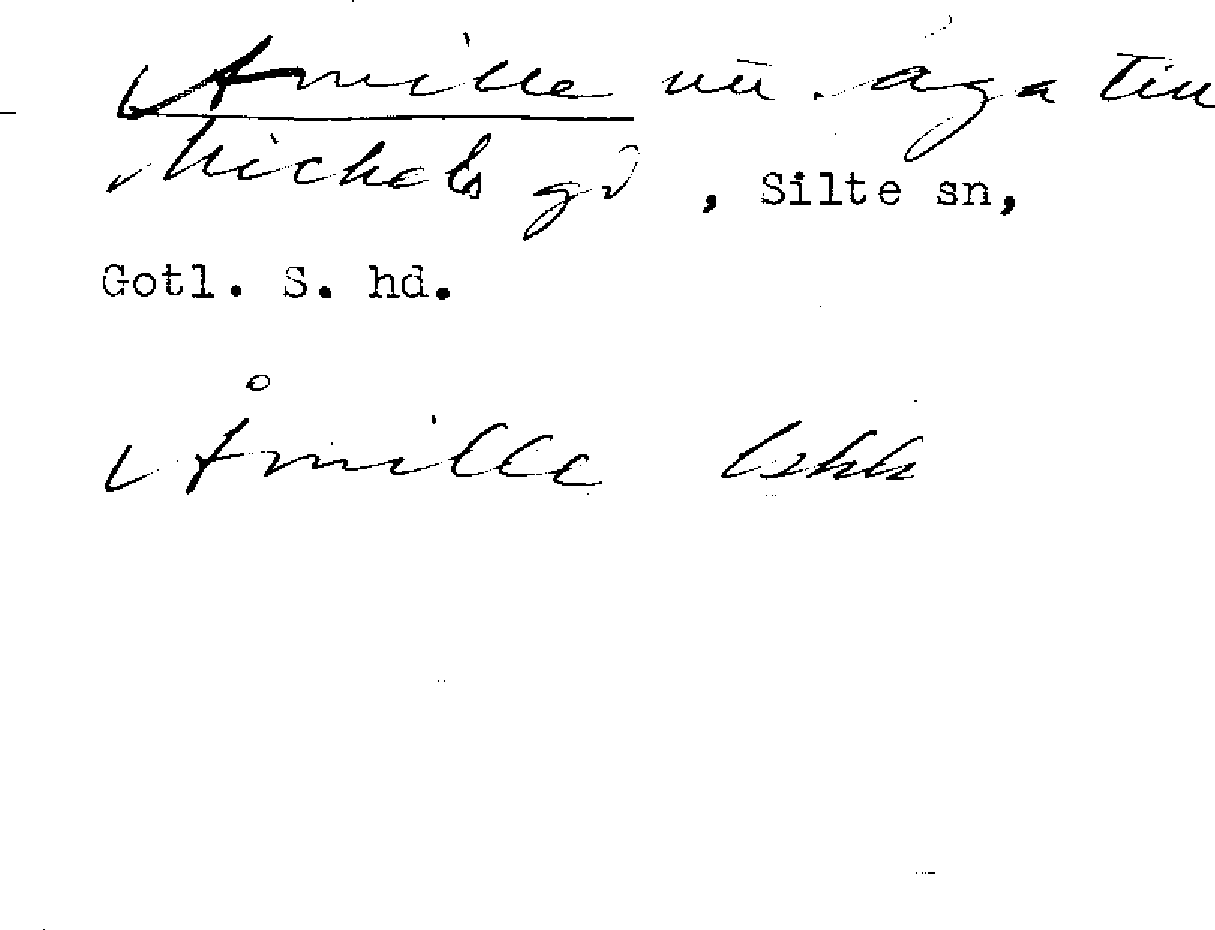 Åmille nu. äga till
Michels gd, Silte sn,
Gotl. S. hd.
Åmille